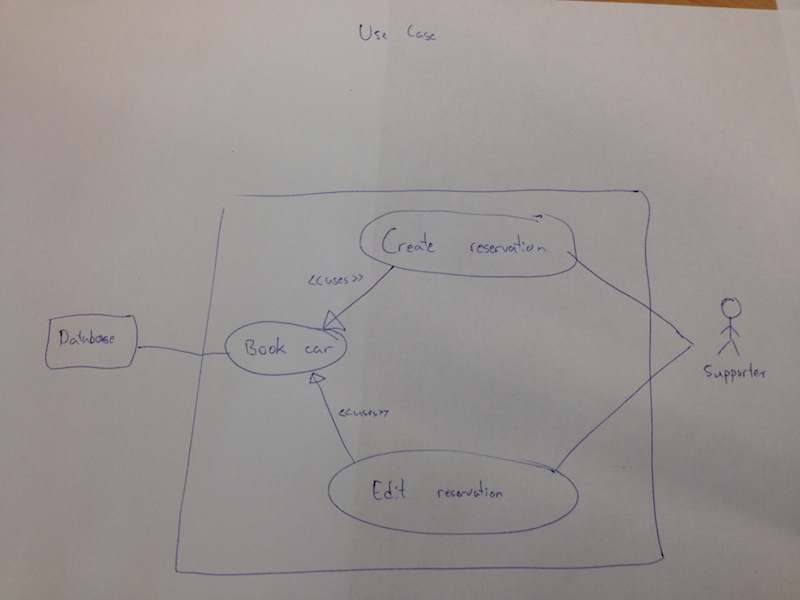 Use Case
Create reservation
<<uses>>
Database
Book car
Supporter
<<uses>>
Edit reservation